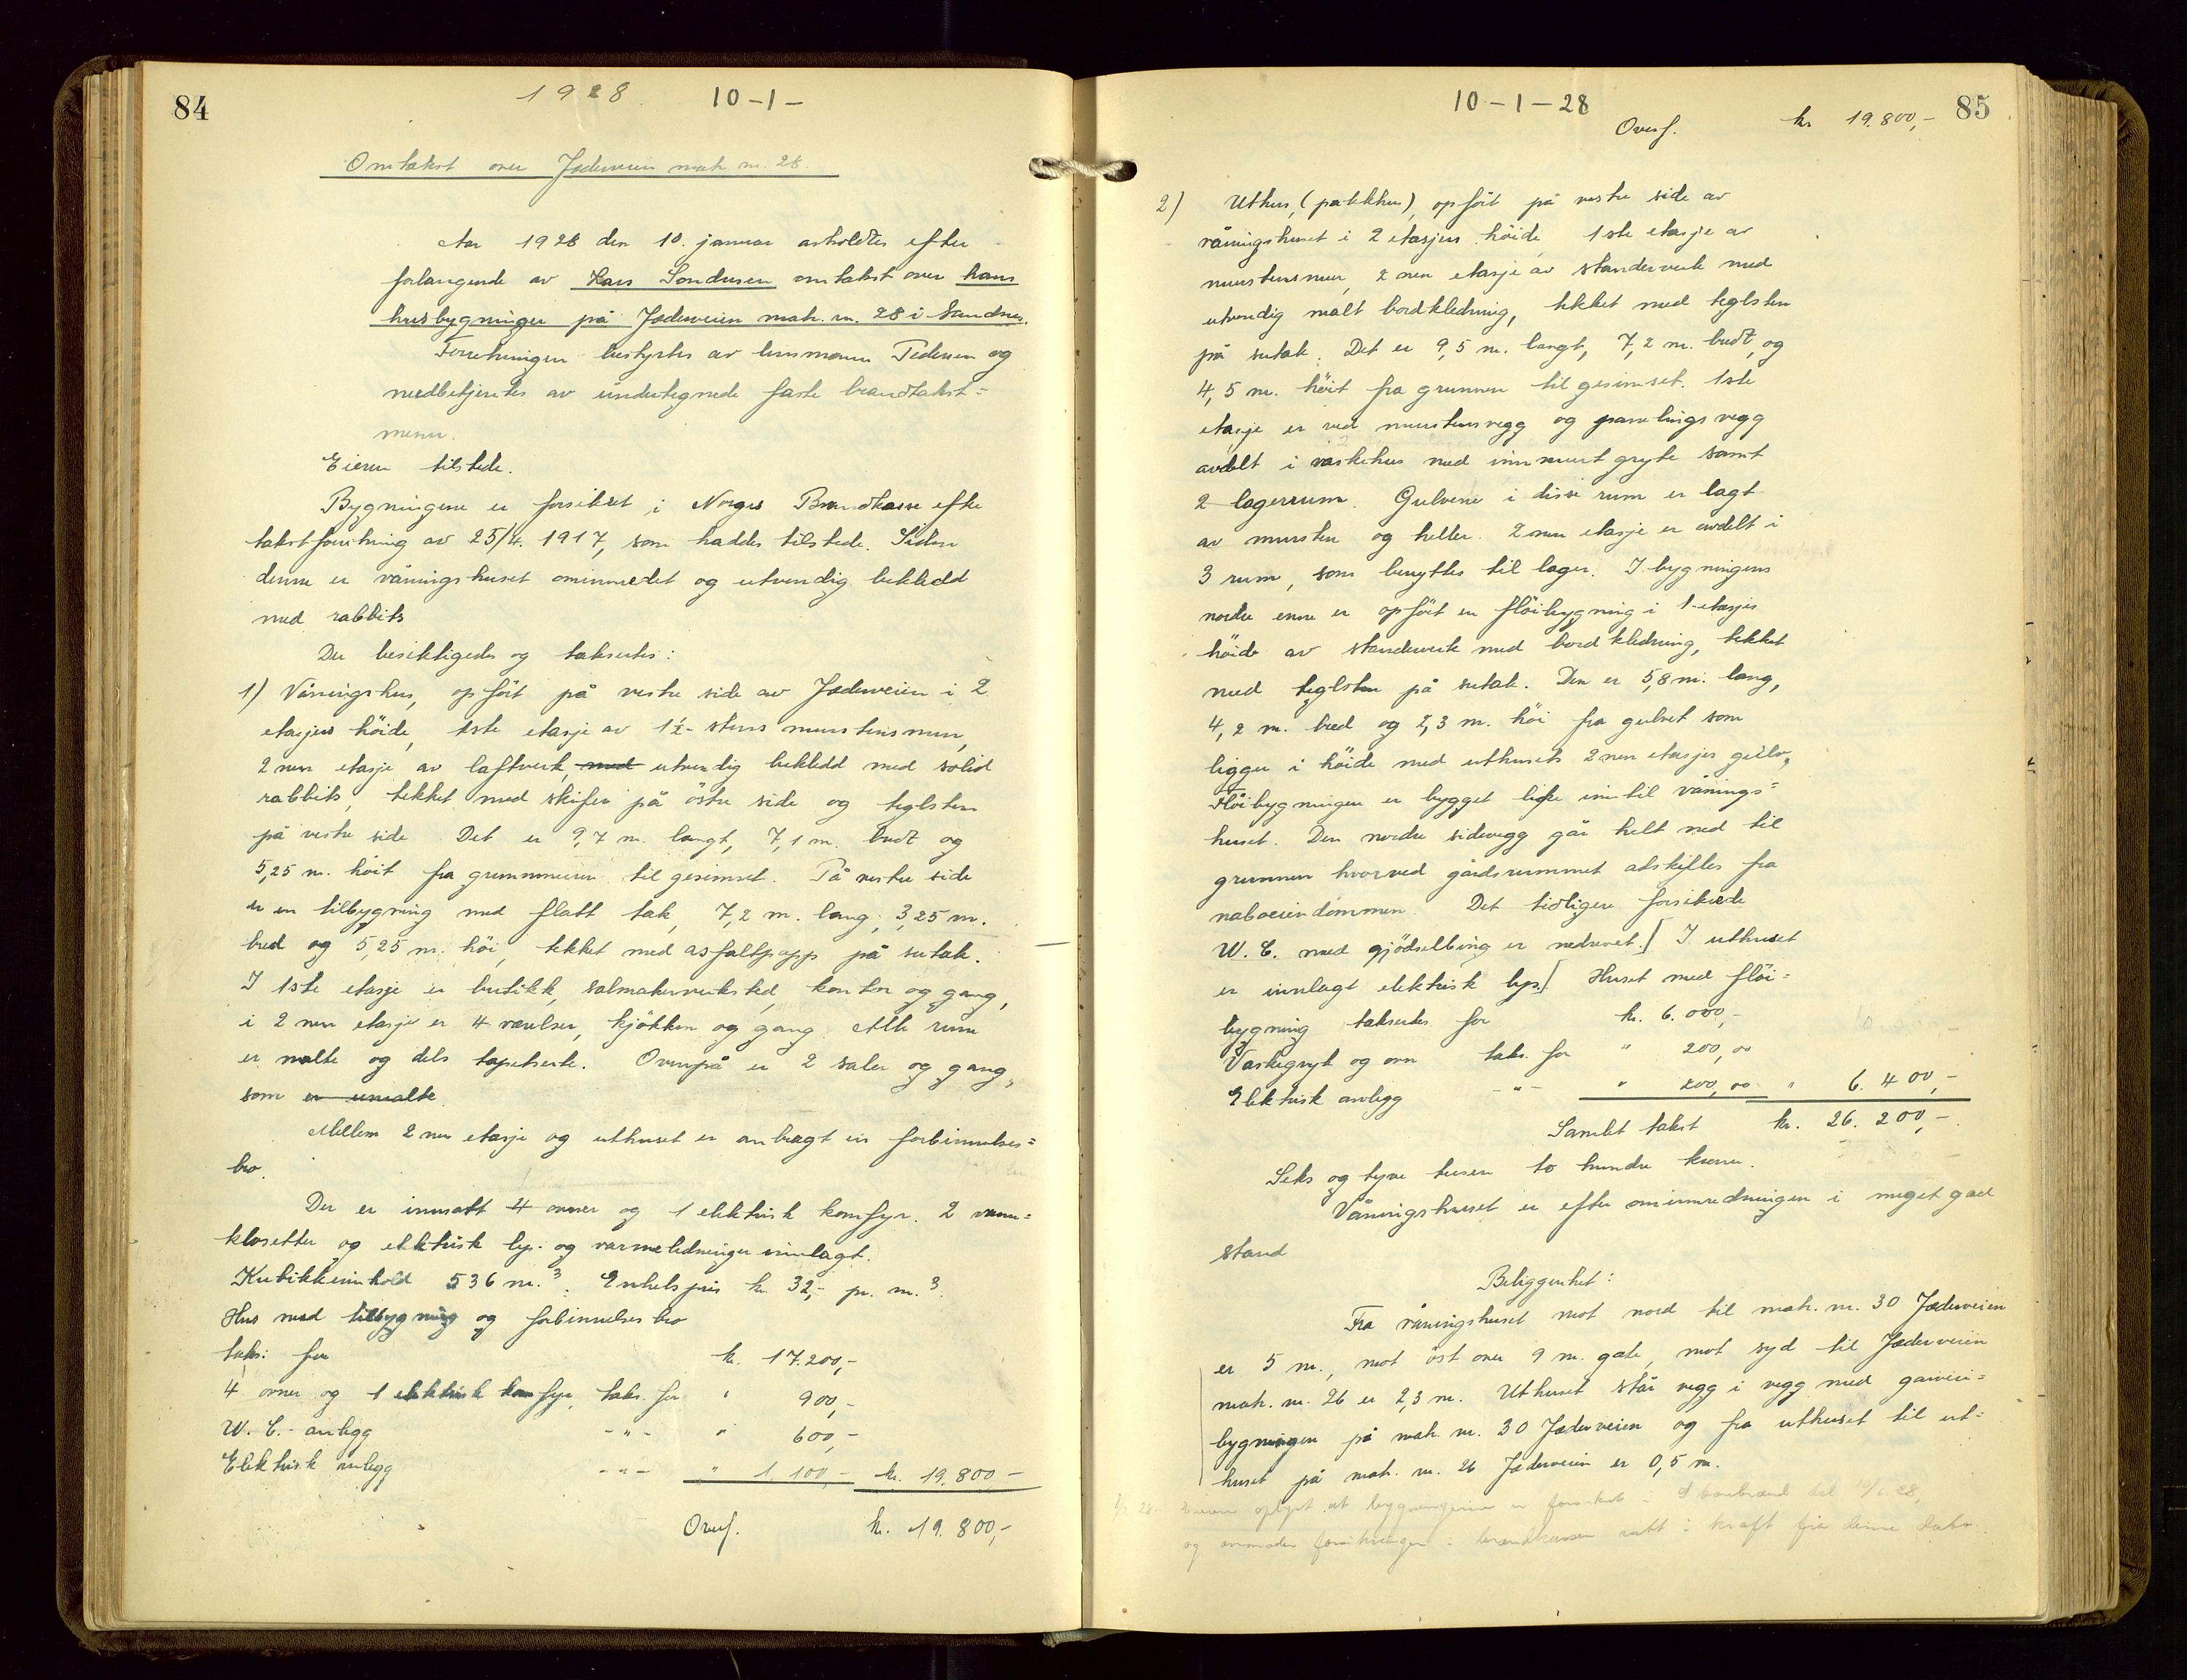 84
1928. 10-1-
Omtakst over Jæderveien matr. nr. 28.
Aar 1928 den 10. januar avholdtes efter
forlangende av Lars Sondresen omtakst over hans
husbygninger på Jæderveien matr. nr. 28 i Sandnes.
Forretningen bestyrtes av lensmann Pedersen og
medbetjentes av undertegnede faste brandtakst=
menn.
Eieren tilstede.
Bygningene er forsikret i Norges Brandkasse efter
takstforretning av 25/4. 1917, som haddes tilstede. Siden
denne er våningshuset ominnredet og utvendig bekledd
med rabbits
Der besiktigedes og taksertes:
1) Våningshus, opført på vestre side av Jæderveien i 2
etasjers höide, 1ste etasje av 1½-stens murstensmur,
2 nen etasje av laftverk, med utvendig bekledd med solid
rabbits, tekket med skifer på östre side og teglsten
på vestre side. Det er 9,7 m. langt, 7,1 m. bredt og
5,25 m. höit fra grunnmuren til gesimset. På vestre side
er en tilbygning med flatt tak, 7,2 m. lang, 3,25 m.
bred og 5,25 m. höi, tekket med asfaltpapp på sutak.
I 1ste etasje er butikk, salmakerverksted, kontor og gang,
i 2 nen etasje er 4 værelser, kjökken og gang. Alle rum
er malte og dels tapetserte. Ovenpå er 2 saler og gang,
som er umalte
Mellem 2 nen etasje og uthuset er anbragt en forbinnelses=
bro.
Der er innsatt 4 ovner og 1 elektrisk komfyr. 2 vann=
klosetter og elektrisk lys- og varmeledninger innlagt.
Kubikkinnhold 536 m.³. Enhetspris kr. 32,- pr. m.³.
Hus med tilbygning og forbinnelsesbro
taks: for kr. 17.200,-
4 ovner og 1 elektrisk komfyr, taks. for " 900,-
W. C.- anlegg -"- " 600,-
Elektrisk anlegg -"- " 1.100,- kr. 19.800,-
Overf. kr. 19.800,-
85
10-1-28
Overf. kr 19.800,-
2) Uthus, (pakkhus), opfört på vestre side av
våningshuset i 2 etasjers höide, 1ste etasje av
murstensmur, 2 nen etasje av standerverk med
utvendig malt bordkledning, tekket med teglsten
på sutak. Det er 9,5 m. langt, 7,2 m. bredt, og
4,5 m. höit fra grunnen til gesimset. 1ste
etasje er ved murstensvegg og panelingsvegg
avdelt i vaskehus med innmurt gryte samt
2 lagerrum. Gulvene i disse rum er lagt
av mursten og heller. 2 nen etasje er avdelt i
3 rum, som benyttes til lager. I bygningens
nordre enne er opfört en flöibygning i 1-etasjes
höide av standerverk med bordkledning, tekket
med teglsten på sutak. Den er 5,8 m. lang,
4,2 m. bred og 2,3 m. höi fra gulvet som
ligger i höide med uthusets 2 nen etasjes gulv,
Flöibygningen er bygget like inntil vånings=
huset. Den nordre sidevegg går helt ned til
grunnen hvorved gårdsrummet adskilles fra
naboeiendommen. Det tidligere forsikrede
W. C. med gjödselbing er nedrevet.] I uthuset
er innlagt elektrisk lys.] Huset med flöi=
bygning taksertes for kr. 6.000,-
Vaskegryte og ovn taks. for " 200,00
Elektrisk anlegg -"- " 200,00 " 6.400,-
Samlet takst kr. 26.200,-
Seks og tyve tusen to hundre kroner.
Våningshuset er efter ominnredningen i meget god
stand
Beliggenhet:
Fra våningshuset mot nord til matr. nr. 30 Jæderveien
er 5 m., mot öst over 9 m. gate, mot syd til Jæderveien
matr. nr. 26 er 2,3 m. Uthuset står vegg i vegg med garveri=
bygningen på matr. nr. 30 Jæderveien og fra uthuset til ut=
huset på matr. nr. 26 Jæderveien er 0,5 m.
Eieren oplyst at bygningene er forsikret i
og anmoder forsikringen i brandkassen satt i kraft fra denne dato.